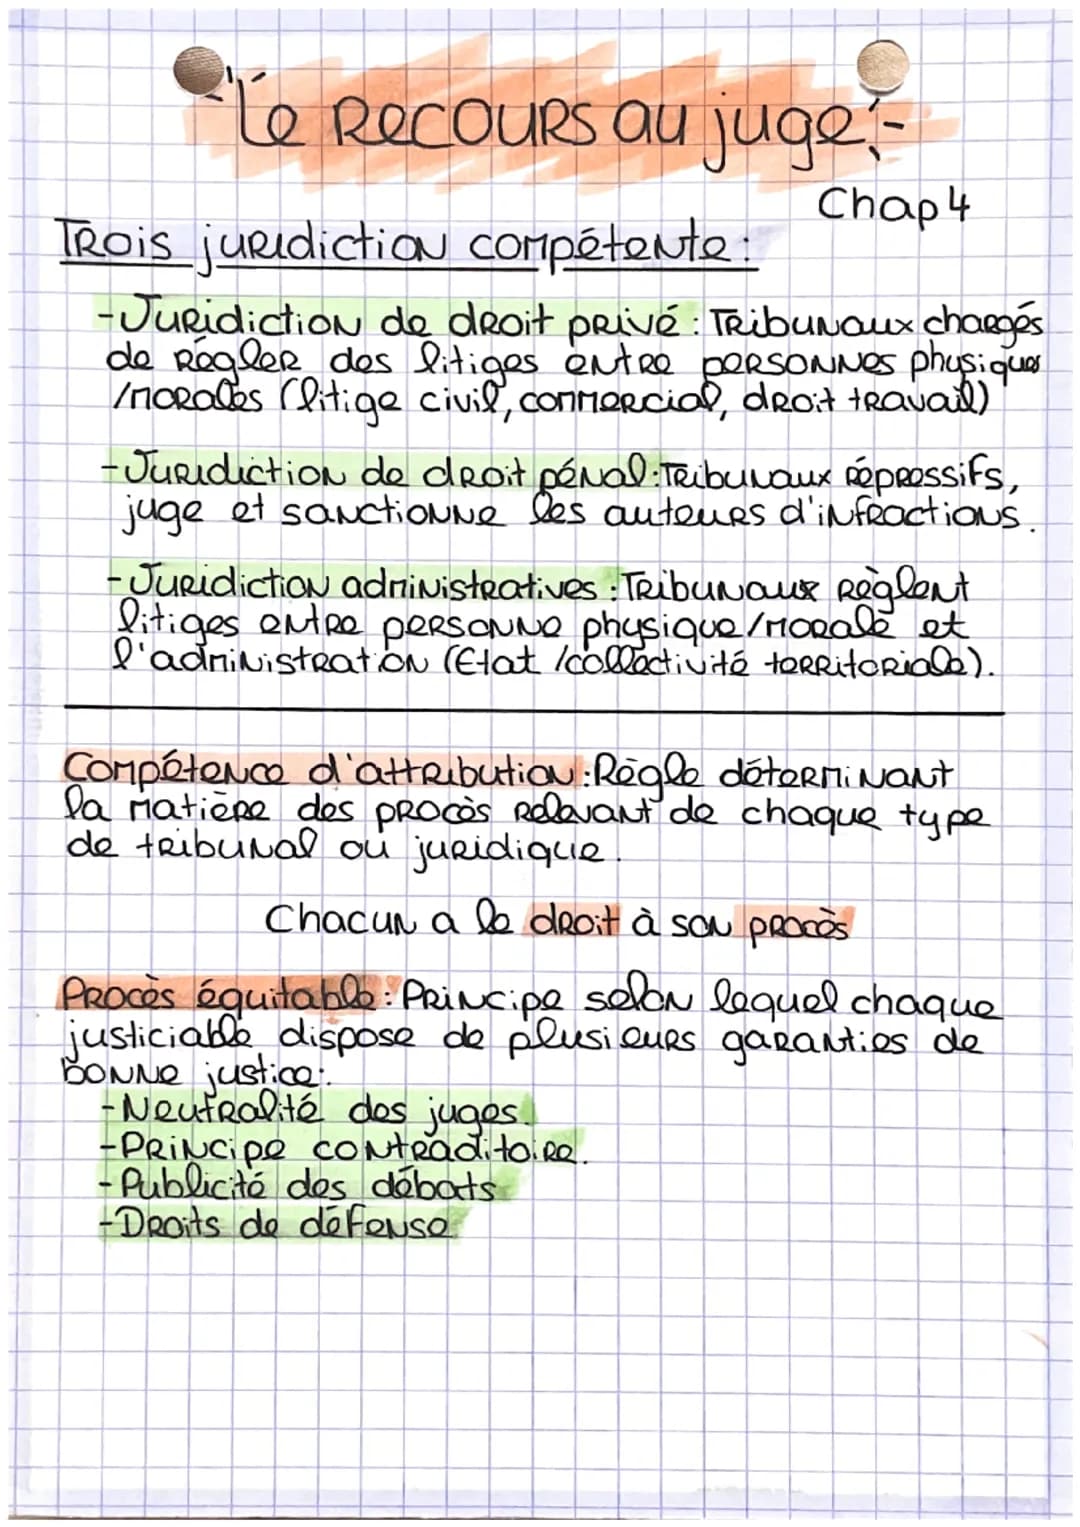 Le Recours au juge
Chap 4
Trois juridiction compétente :
- Juridiction de droit privé : Tribunaux chargés
de régler des litiges entre personnes physiques
/morales (litige civil, commercial, droit travail)
- Juridiction de droit pénal : Tribunaux répressifs,
juge et sanctionne les auteurs d'infractions.
- Juridiction administratives : Tribunaux règlent
litiges entre personne physique/morale et
l'administration (Etat /collectivité territoriale).
Compétence d'attribution : Règle déterminant
la matière des procès relevant de chaque type
de tribunal ou juridique.
Chacun a le droit à son procès
Procès équitable : Principe selon lequel chaque
justiciable dispose de plusieurs garanties de
bonne justice :
- Neutralité des juges.
- Principe contraditoire.
- Publicité des débats
- Droits de défense